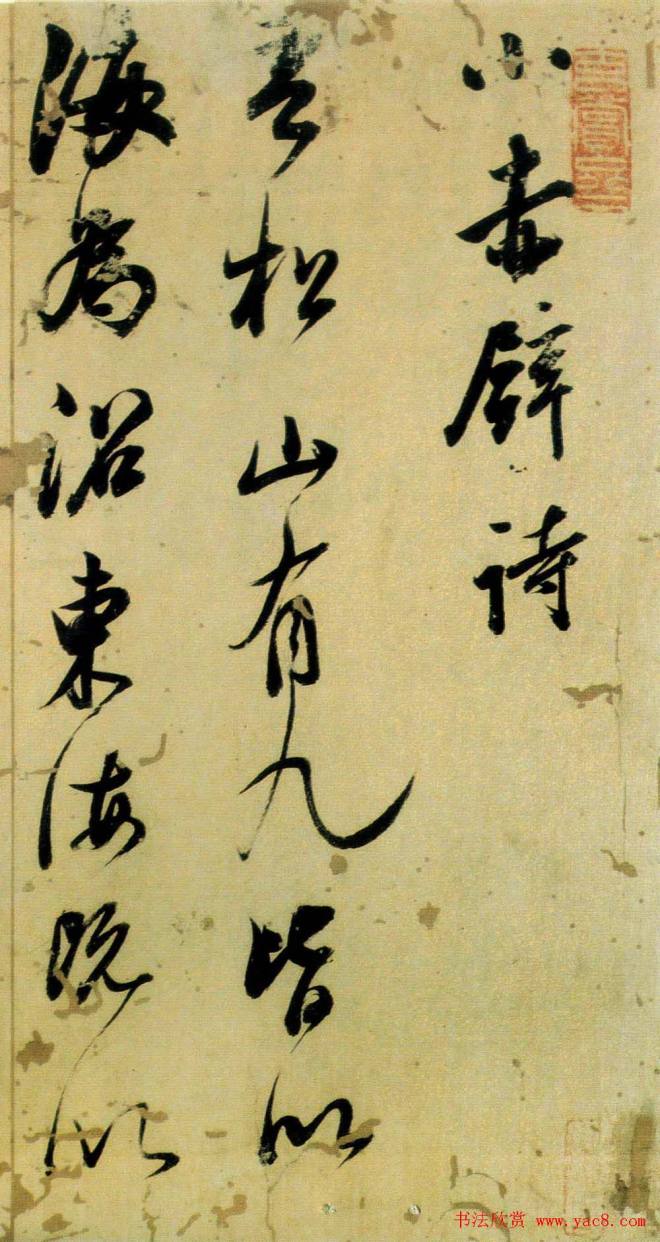 小赤壁詩
吾松山有九皆以
海為沼東海既以
书法欣赏 www.yac8.com